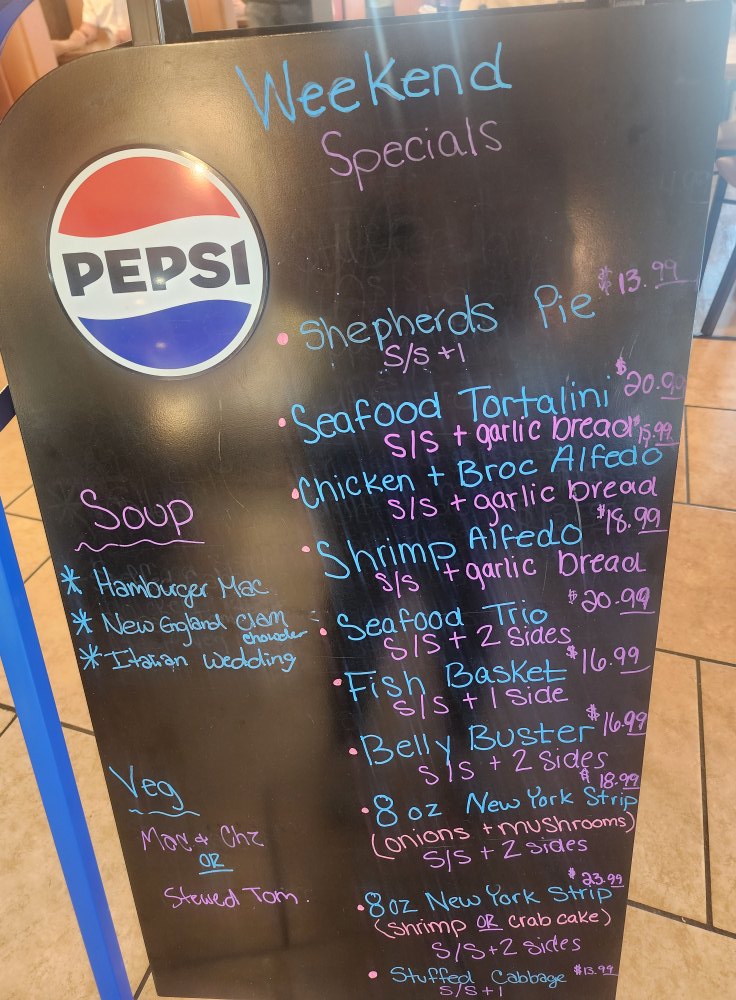 Weekend
Specials
PEPSI
$13.99
• Shepherds Pie
S/S +1
$20.99
• Seafood Tortalini
S/S + garlic bread
$15.99
• Chicken + Broc Alfedo
S/S + garlic bread
$18.99
• Shrimp Alfedo
S/S + garlic bread
$20.99
• Seafood Trio
S/S + 2 Sides
$16.99
• Fish Basket
S/S + 1 Side
$16.99
• Belly Buster
S/S + 2 Sides
$18.99
• 8 oz New York Strip
(onions + mushrooms)
S/S + 2 sides
$23.99
• 8oz New York Strip
(shrimp OR crab cake)
S/S + 2 sides
• Stuffed Cabbage $13.99
S/S + 1
Soup
* Hamburger Mac
* New England Clam
chowder
* Italian Wedding
Veg
Mac + Chz
OR
Stewed Tom.